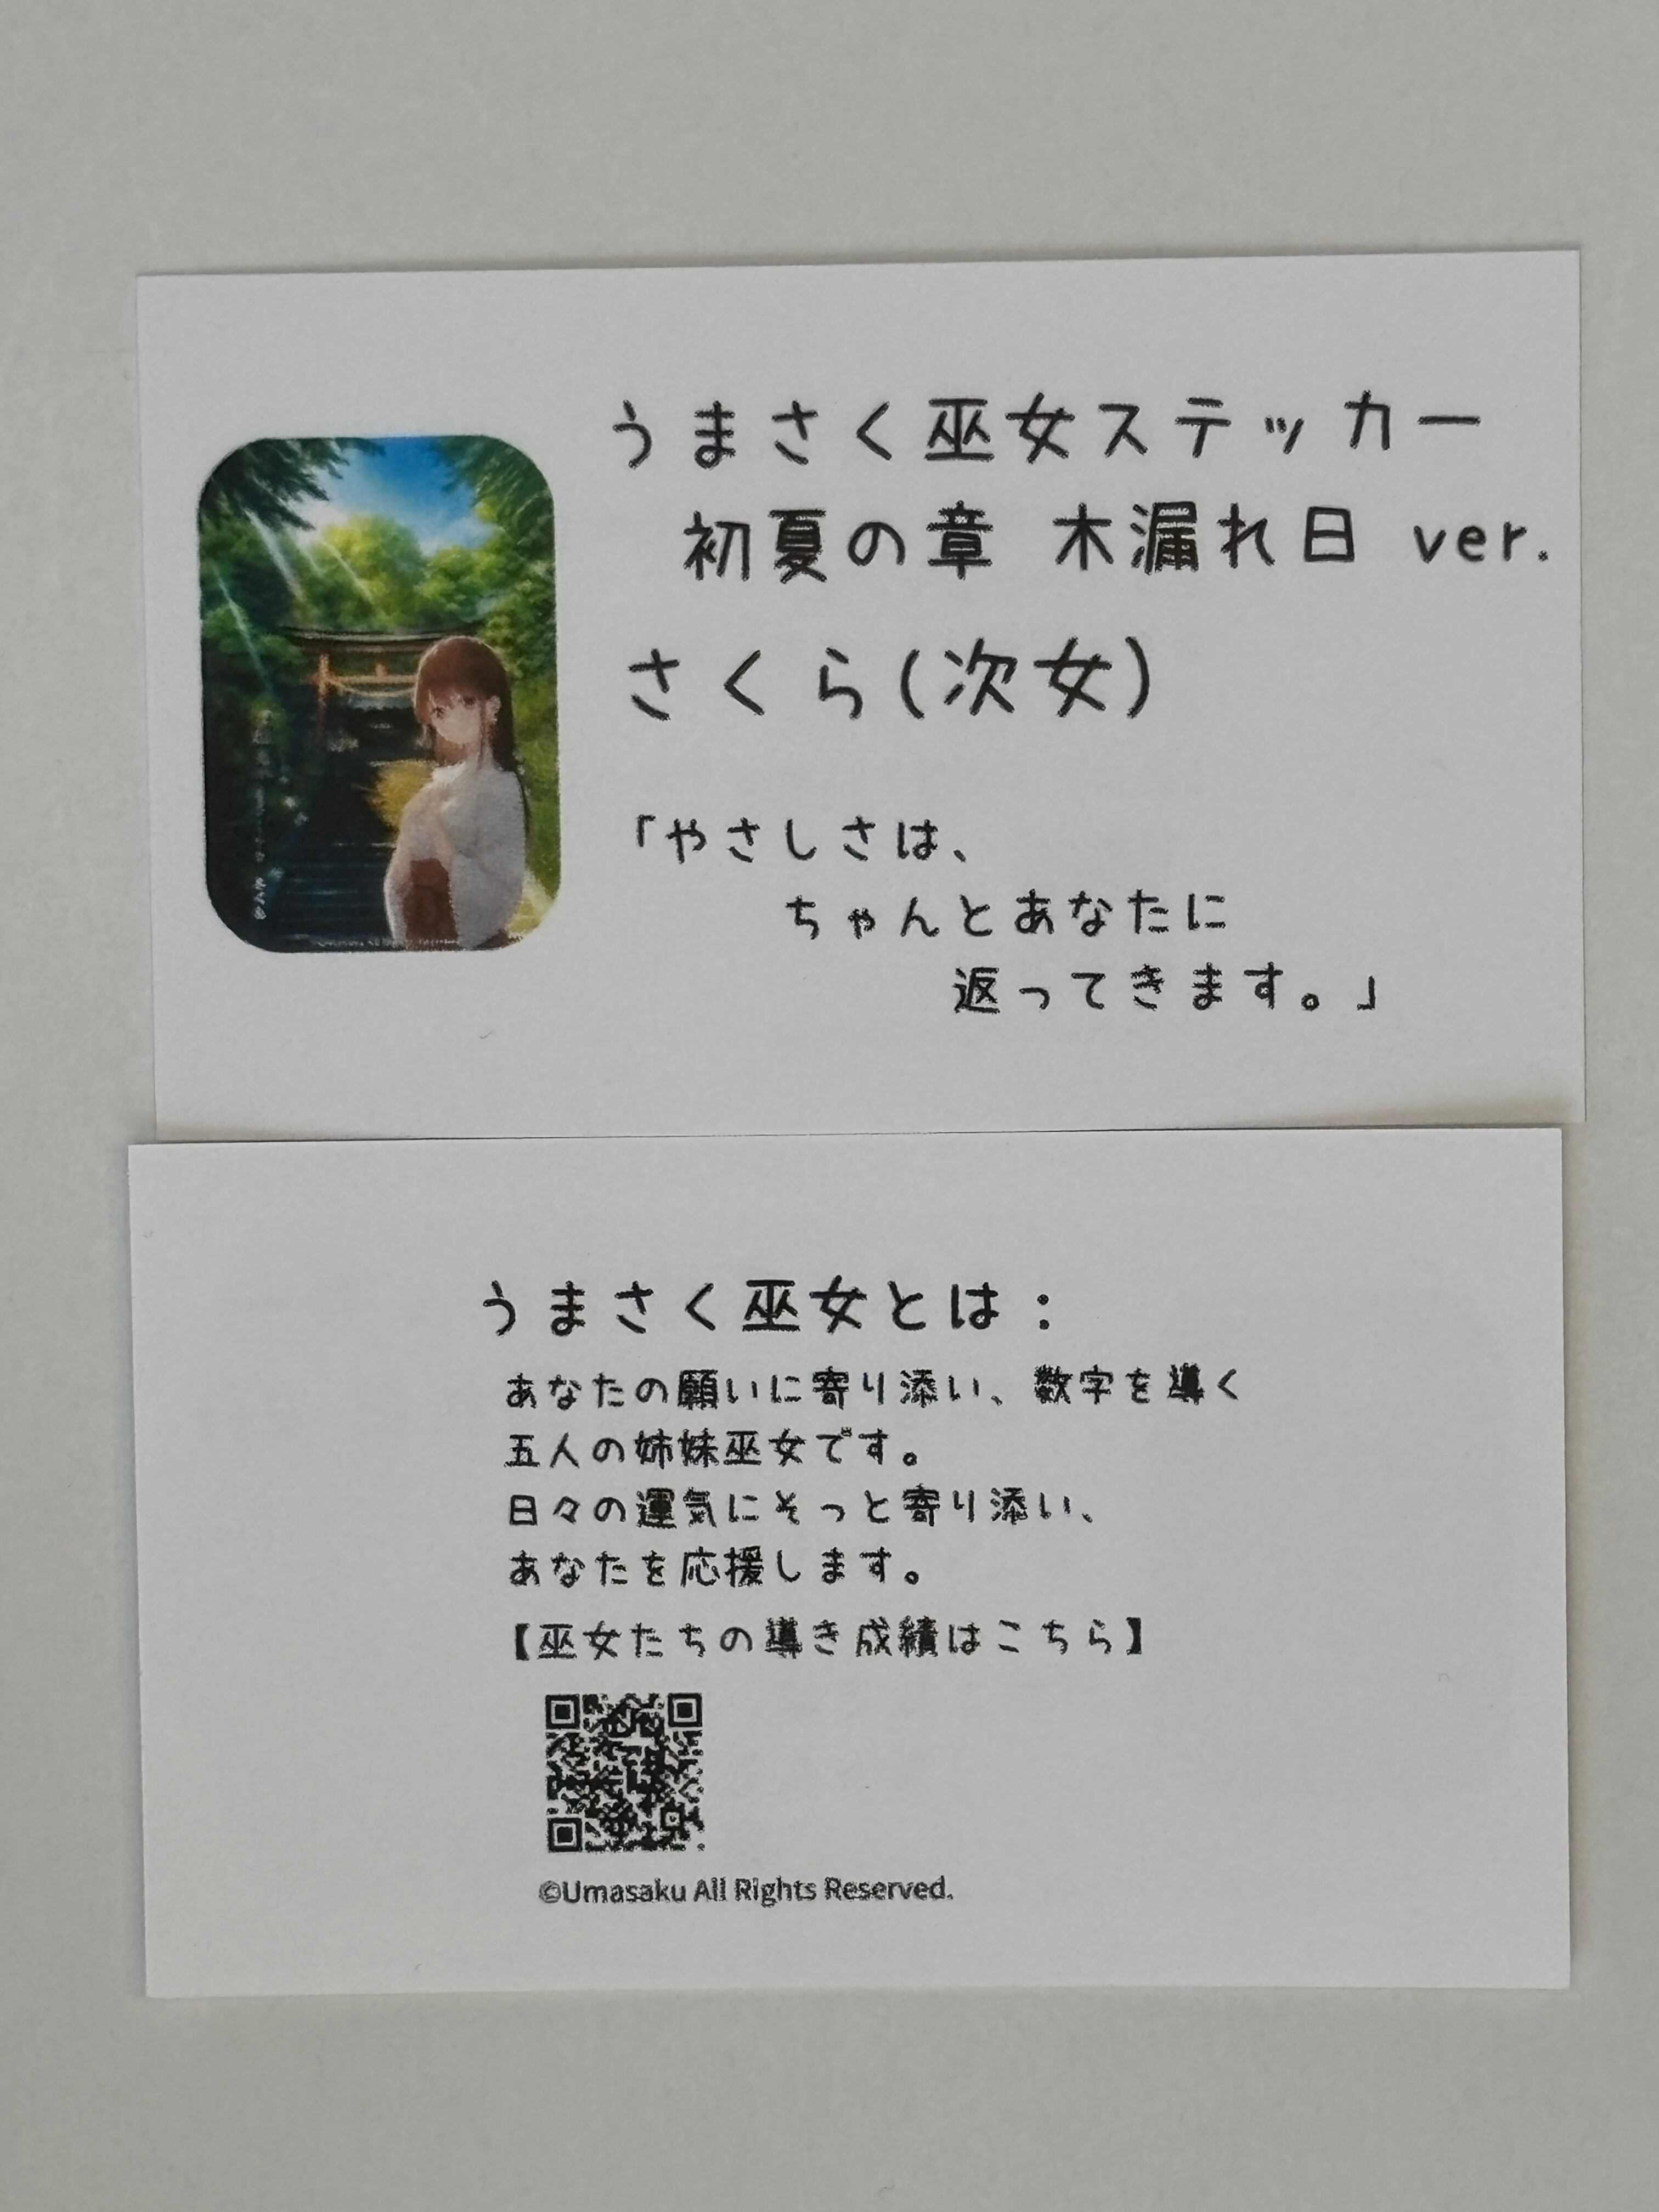 うまさく巫女ステッカー
初夏の章 木漏れ日 ver.
さくら(次女)
「やさしさは、
ちゃんとあなたに
返ってきます。」
うまさく巫女とは:
あなたの願いに寄り添い、数字を導く
五人の姉妹巫女です。
日々の運気にそっと寄り添い、
あなたを応援します。
【巫女たちの導き成績はこちら】
©Umasaku All Rights Reserved.